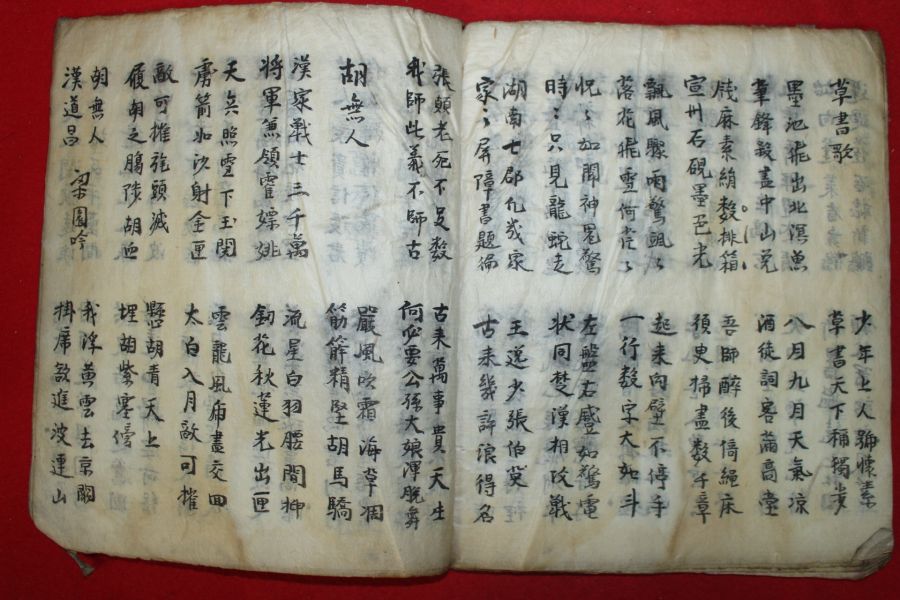 草書歌
少年上人號懷素
草書天下稱獨步
墨池飛出北溟魚
筆鋒殺盡中山兔
八月九月天氣涼
酒徒詞客滿高堂
牋麻素絹数排箱
宣州石硯墨色光
吾師醉後倚繩床
須臾掃盡数千章
飄風驟雨驚颯々
落花飛雪何茫々
起來向壁不停手
一行数字大如斗
怳々如聞神鬼驚
時々只見龍蛇走
左盤右蹙如驚電
状同楚漢相攻戰
湖南七郡凡幾家
家々屏障書題徧
王逸少張伯英
古来幾許浪得名
張顛老死不足数
我師此義不師古
古来萬事貴天生
何必要公孫大娘渾脫舞
胡無人
嚴風吹霜海草凋
筋幹精堅胡馬驕
漢家戰士三千萬
將軍兼領霍嫖姚
流星白羽腰間挿
釼花秋蓮光出匣
天兵照雪下玉関
虜箭如沙射金匣
雲龍風虎盡交回
太白入月敵可摧
敵可摧旄頭滅
履胡之腸涉胡血
懸胡青天上
埋胡紫塞傍
胡無人
漢道昌
梁園吟
我浮黄雲去京闕
掛席欲進波連山